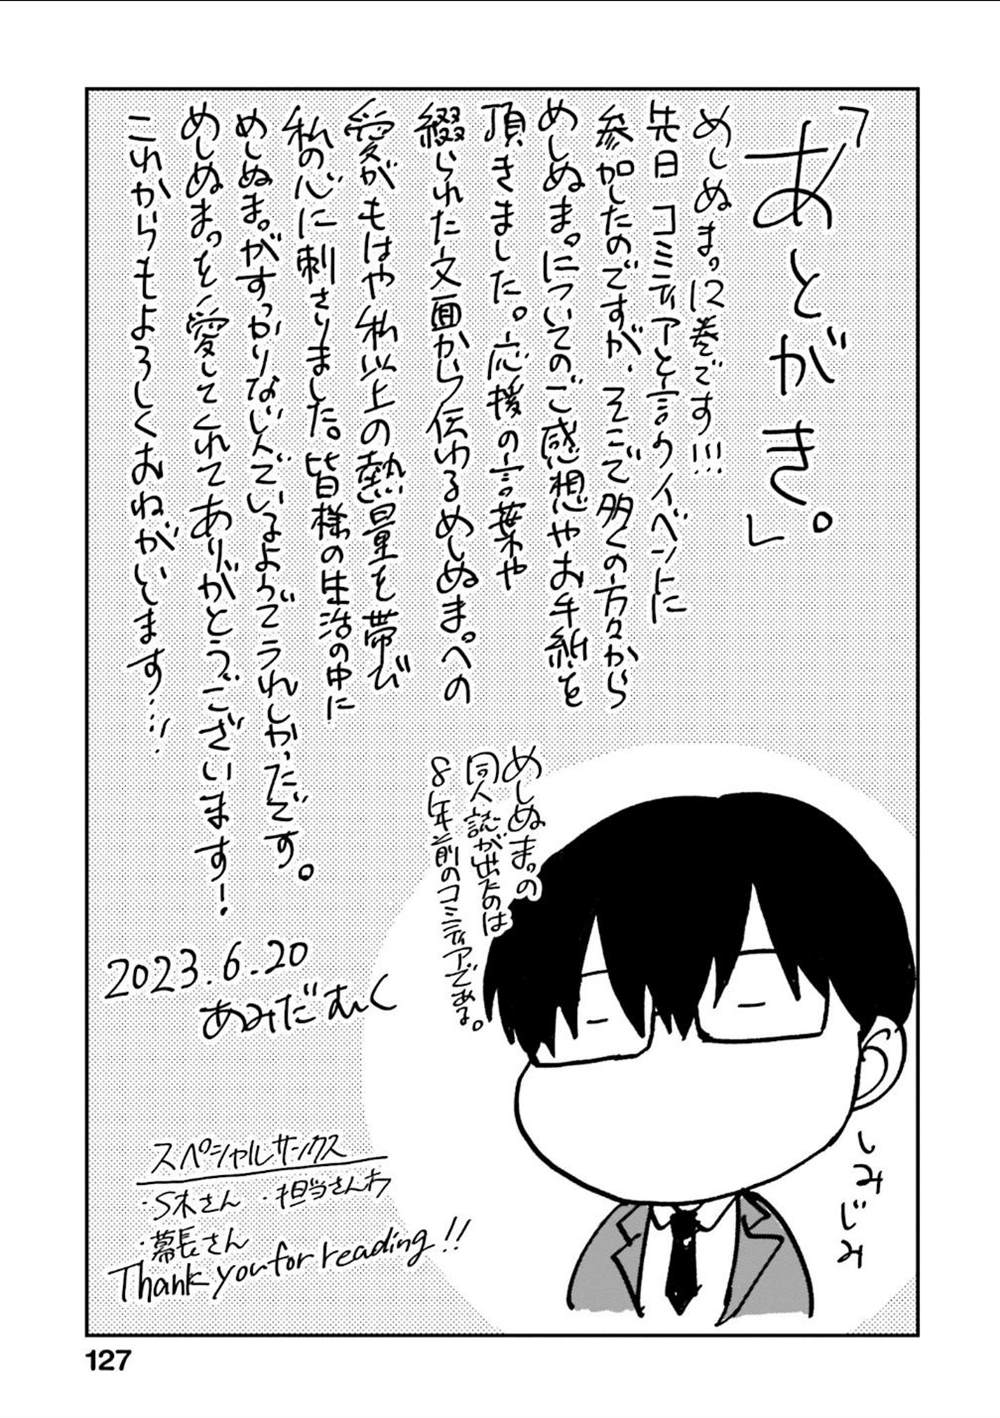 「あとがき。」
めしぬま。12巻です!!!
先日コミティアと言うイベントに
参加したのですが、そこで多くの方々から
めしぬま。についてのご感想やお手紙を
頂きました。応援の言葉や
綴られた文面から伝わるめしぬま。への
愛がもはや私以上の熱量を帯び
私の心に刺さりました。皆様の生活の中に
めしぬま。がすっかりなじんでいるようでうれしかったです。
めしぬま。を愛してくれてありがとうございます!
これからもよろしくおねがいします!!!
めしぬま。の
同人誌が出たのは
8年前のコミティアである。
しみじみ
2023.6.20
あみだむく
スペシャルサンクス
・S木さん ・担当さんわ
・幕長さん
Thank you for reading!!
127